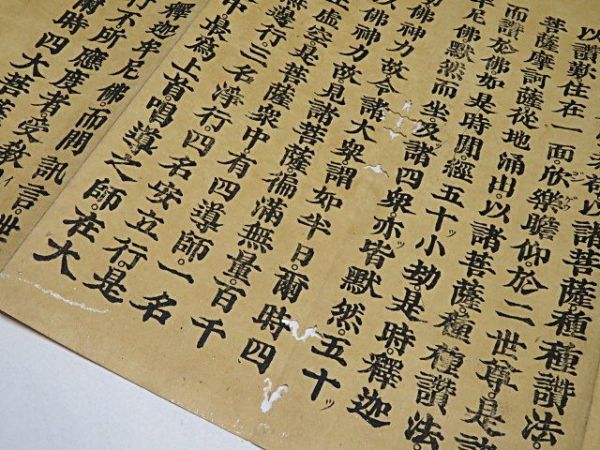 以諸菩薩種種讚法。
以讚歎住在一面。欣樂瞻仰於二世尊。是諸
菩薩摩訶薩從地涌出。以諸菩薩。種種讚法。
而讚於佛。如是時間。經五十小劫。是時。釋迦
牟尼佛默然而坐。及諸四衆。亦皆默然。五十
佛神力故。令諸大衆。謂如半日。爾時四
佛神力故。見諸菩薩。徧滿無量。百千
虛空。是菩薩衆中有四導師。一名
無邊行。三名淨行。四名安立行。是
中。最為上首。唱導之師。在大
釋迦牟尼佛。而問訊言。世
行不。所應度者。受教
爾時四大菩薩